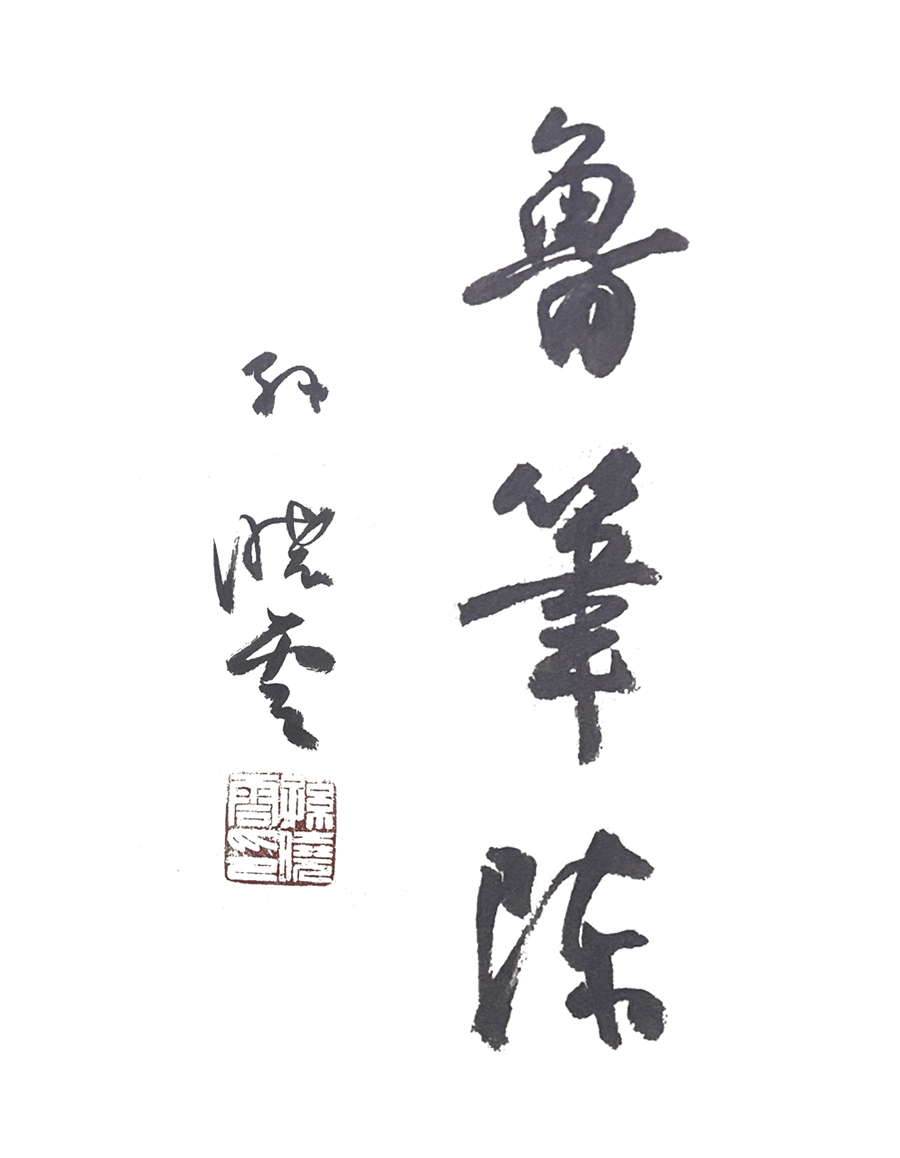 魯筆陈
孙曉雲
孫曉雲印